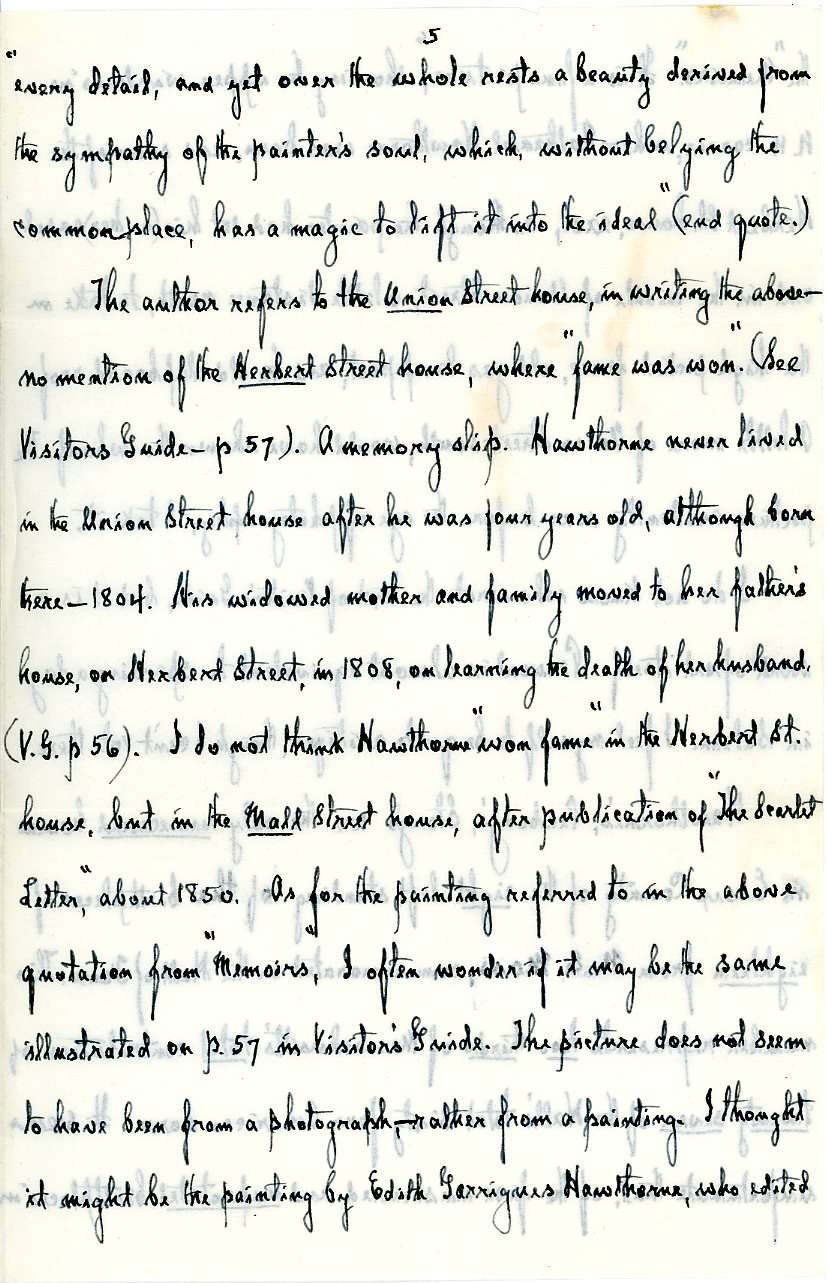 5
"every detail, and yet over the whole rests a beauty derived from
the sympathy of the painter's soul, which, without belying the
commonplace, has a magic to lift it into the ideal" (end quote.)
The author refers to the Union Street house, in writing the above—
no mention of the Herbert Street house, where "fame was won". (See
Visitors Guide — p 57). A memory slip. Hawthorne never lived
in the Union Street house after he was four years old, although born
there — 1804. His widowed mother and family moved to her father's
house, on Herbert Street, in 1808, on learning the death of her husband.
(V.G. p 56). I do not think Hawthorne "won fame" in the Herbert St.
house, but in the Mall Street house, after publication of "The Scarlet
Letter," about 1850. As for the painting referred to in the above
quotation from "Memoirs", I often wonder if it may be the same
illustrated on p. 57 in Visitor's Guide. The picture does not seem
to have been from a photograph, — rather from a painting. I thought
it might be the painting by Edith Garrigues Hawthorne, who edited